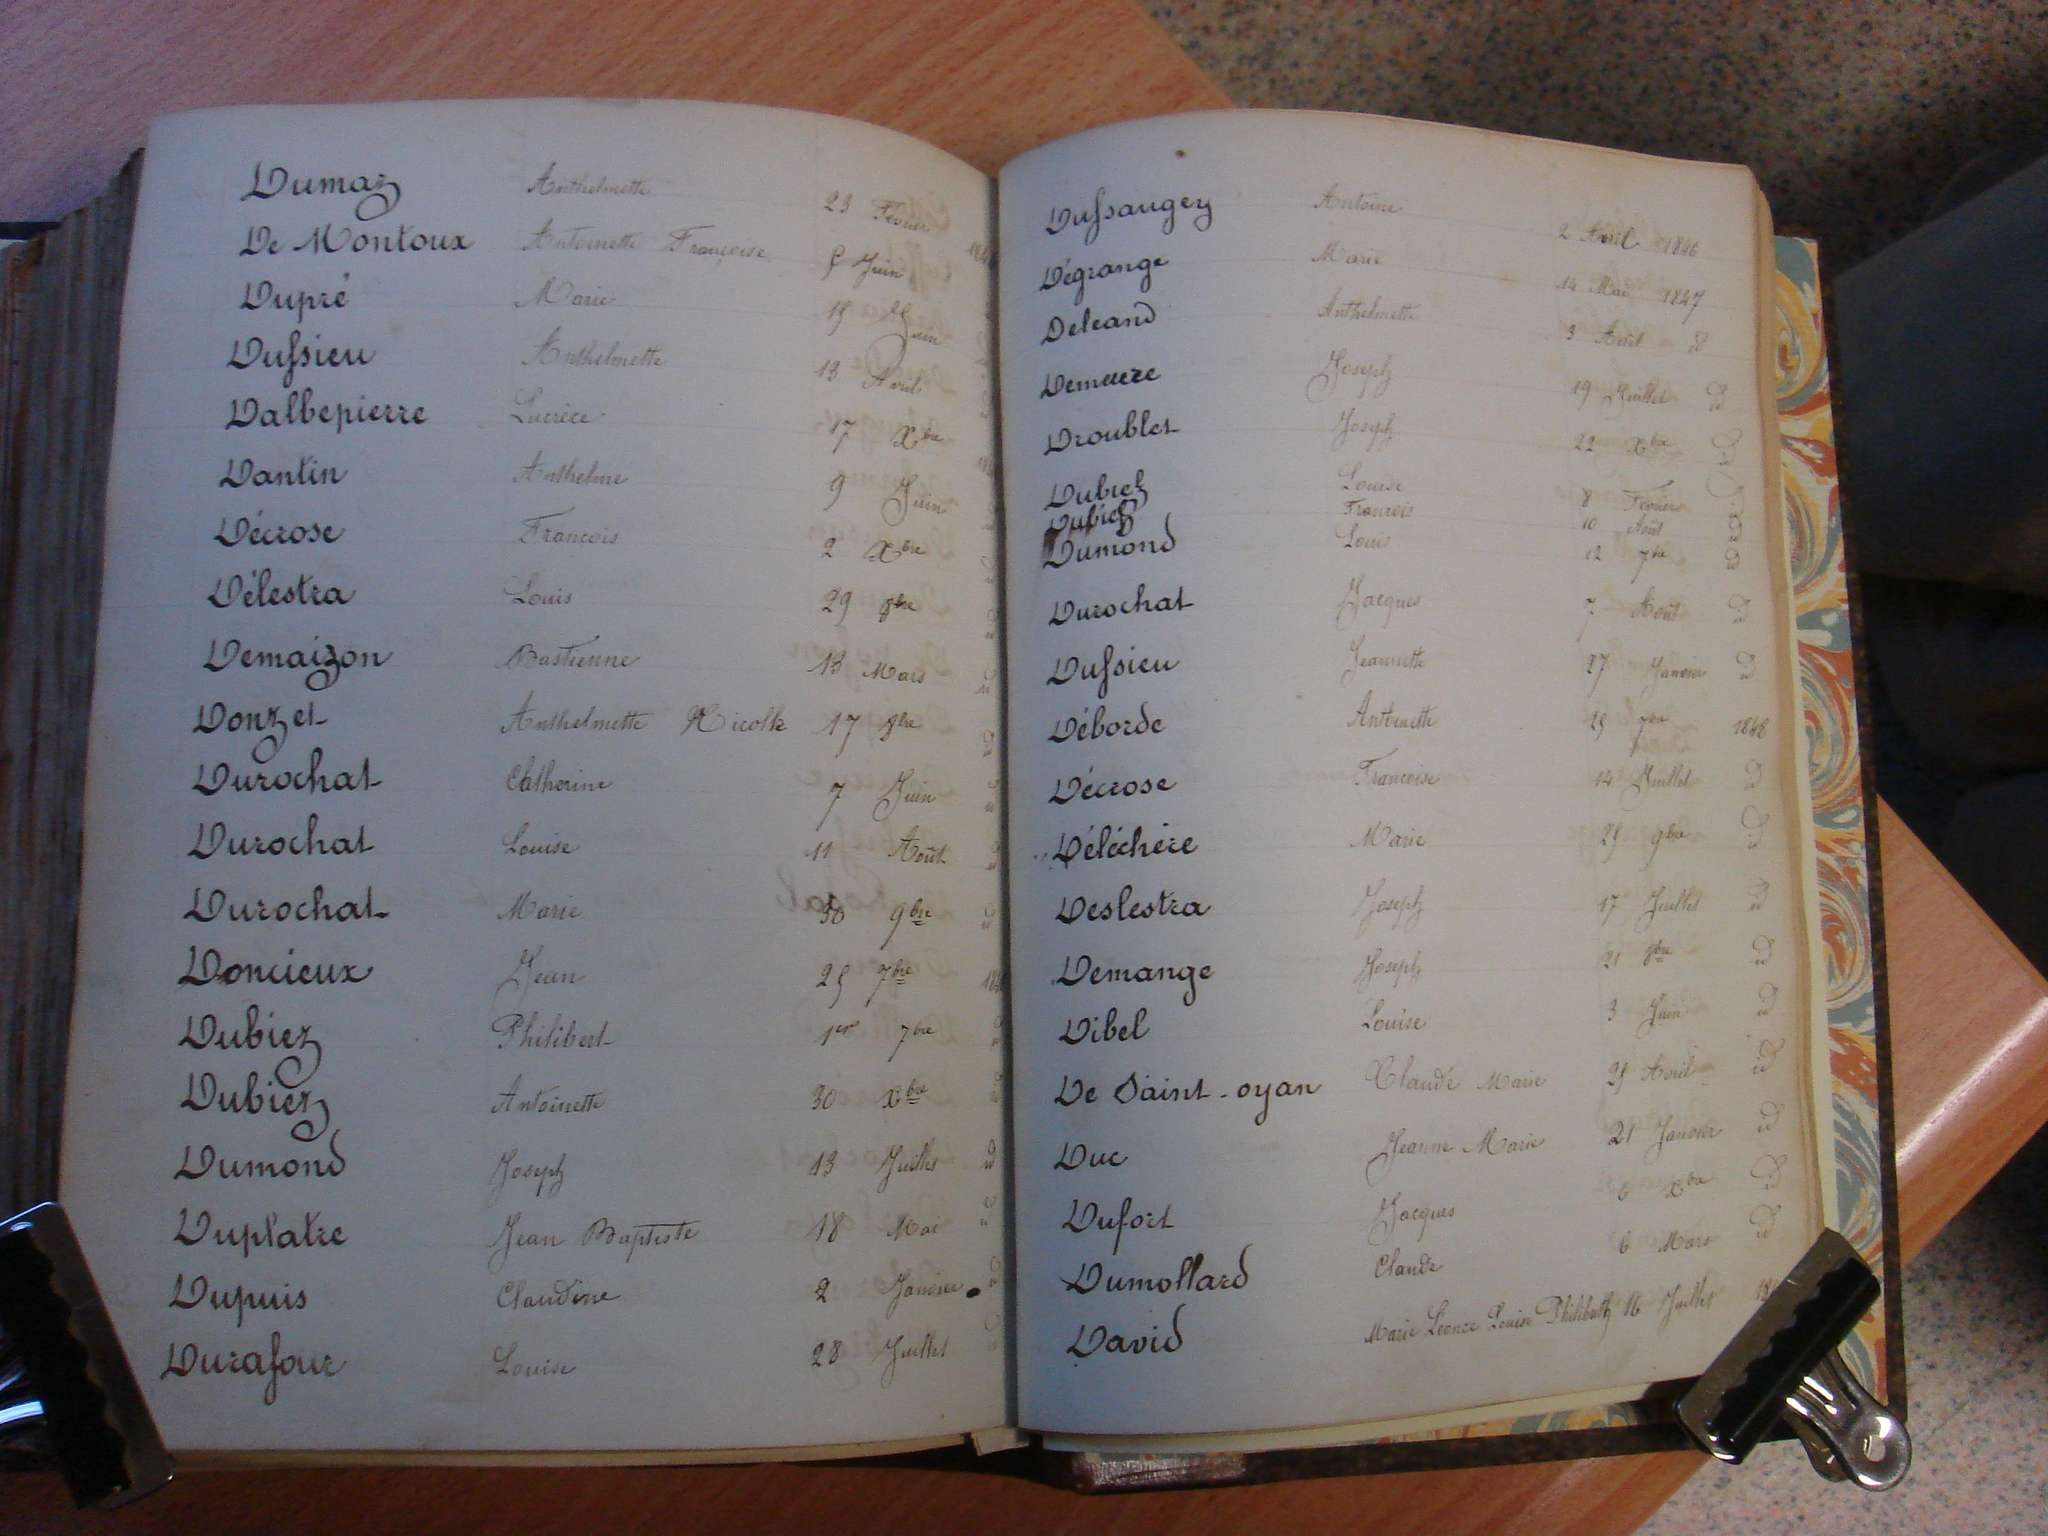 Dumaz Anthelmette 23 Fevrier
De Montoux Antoinette Françoise 5 Juin
Dupré Marie 15 Juin
Dussieu Anthelmette 13 Avril
Dalbepierre Lucrèce 17 Xbre
Dantin Anthelme 9 Juin
Décrose François 2 Xbre
Délestra Louis 29 8bre
Demaizon Bastienne 13 Mars
Donzet Anthelmette Nicolle 17 8bre
Durochat Catherine 7 Juin
Durochat Louise 11 Août
Durochat Marie 30 9bre
Doncieux Jean 25 7bre
Dubiez Philibert 1er 7bre
Dubiez Antoinette 30 Xbre
Dumond Joseph 13 Juillet id
Duplatre Jean Baptiste 18 Mai
Dupuis Claudine 2 Janvier
Durafour Louise 28 Juillet
Dussaugey Antoine 2 Avril 1846
Dégrange Marie 14 Mai 1847
Deleand Anthelmette 3 Avril id
Demeure Joseph 19 Juillet id
Droublet Joseph 22 Xbre id
Dubiez Louise 8 Fevrier id
Dubiez François 10 Août id
Dumond Louis 12 7bre id
Durochat Jacques 7 Août id
Dussieu Jeannette 27 Janvier id
Déborde Antoinette 25 7bre 1848
Décrose Françoise 14 Juillet id
Déléchère Marie 25 9bre id
Deslestra Joseph 17 Juillet id
Demange Joseph 21 8bre id
Dibel Louise 3 Juin id
De Saint-oyan Claude Marie 25 Avril id
Duc Jeanne Marie 21 Janvier id
Dufort Jacques 6 Xbre id
Dumollard Claude 6 Mars id
David Marie Leonce Louise Philiberth 16 Juillet